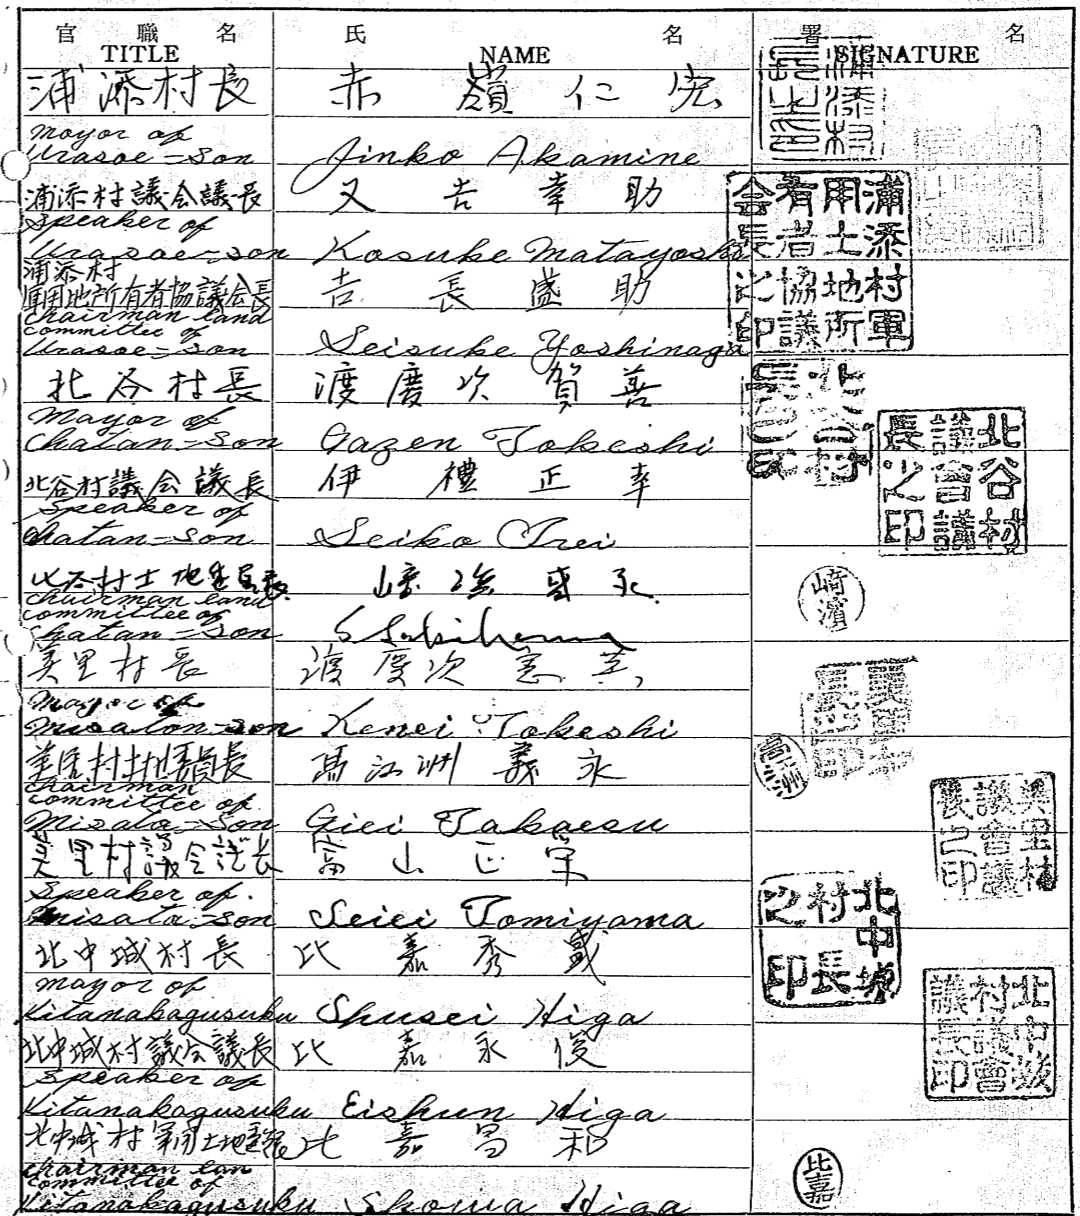 官職名 氏名 署名
TITLE NAME SIGNATURE
浦添村長 赤嶺仁宏
Mayor of
Urasoe-Son Jinko Akamine
浦添村議会議長 又吉幸助
Speaker of
Urasoe-son Kosuke Matayoshi
浦添村
軍用地所有者協議会長 吉長盛助
chairman land
committee of
Urasoe-Son Seisuke Yoshinaga
浦添村軍
用土地所
有者協議
会長之印
北谷村長 渡慶次賀善
Mayor of
Chatan-Son Gazen Tokeshi
北谷村議会議長 伊禮正幸
Speaker of
Chatan-Son Seiko Irei
北谷村
議會議
長之印
北谷村土地委員長
chairman land
committee of
Chatan-Son
崎濱
美里村長 渡慶次憲
Mayor of
Misaton-son Kenei Tokeshi
美里村土地委員長 高江洲義永
chairman
committee of
Misato-Son Giei Takaesu
美里村議会議長 富山正栄
Speaker of
Misato-Son Seiei Tomiyama
美里村
議會議
長之印
北中城村長 比嘉秀盛
Mayor of
Kitanakagusuku Shusei Higa
北中城
村長
之印
北中城村議会議長 比嘉永俊
Speaker of
Kitanakagusuku Eishun Higa
北中城
村議會
議長印
北中城村軍用土地委員長 比嘉昌和
chairman lan
committee of
Kitanakagusuku Showa Higa
比嘉